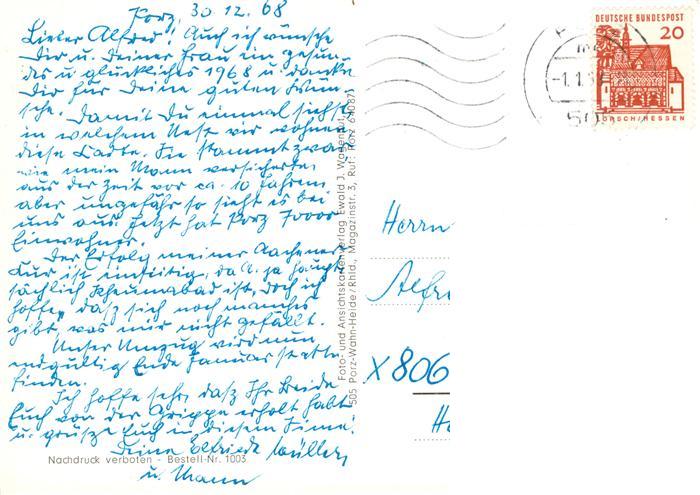 Porz, 30.12.68
Lieber Alfred! Auch ich wünsche
Dir u. Deiner Frau ein gesun-
des u. glückliches 1968 u. danke
Dir für Deine guten Wün-
sche. Damit Du einmal siehst
in welchem Nest wir wohnen
diese Karte. Sie stammt zwar
wie mein Mann versicherte,
aus der Zeit vor ca. 10 Jahren,
aber ungefähr so sieht es bei
uns aus. Jetzt hat Porz 70000
Einwohner.
Der Erfolg meiner Aachener
Kur ist da ja haupt
sächlich Rheumabad ist, doch ich
hoffe, daß sich noch manches
gibt, was mir nicht gefällt.
Unser Umzug wird nun
endgültig Ende Januar statt-
finden.
Ich hoffe sehr, daß Ihr Beide
Euch von der Grippe erholt habt
u. grüsze Euch in diesem Sinne!
Deine Elfriede Müller
u. Mann
Nachdruck verboten - Bestell-Nr. 1003
Foto- und Ansichtskartenverlag Ewald J. Wartenfut,
505 Porz-Wahn-Heide/Rhld., Magazinstr. 3, Ruf: Porz 64087
DEUTSCHE BUNDESPOST
20
LORSCH/HESSEN
-1.1.
Herrn
Alfr
X 806